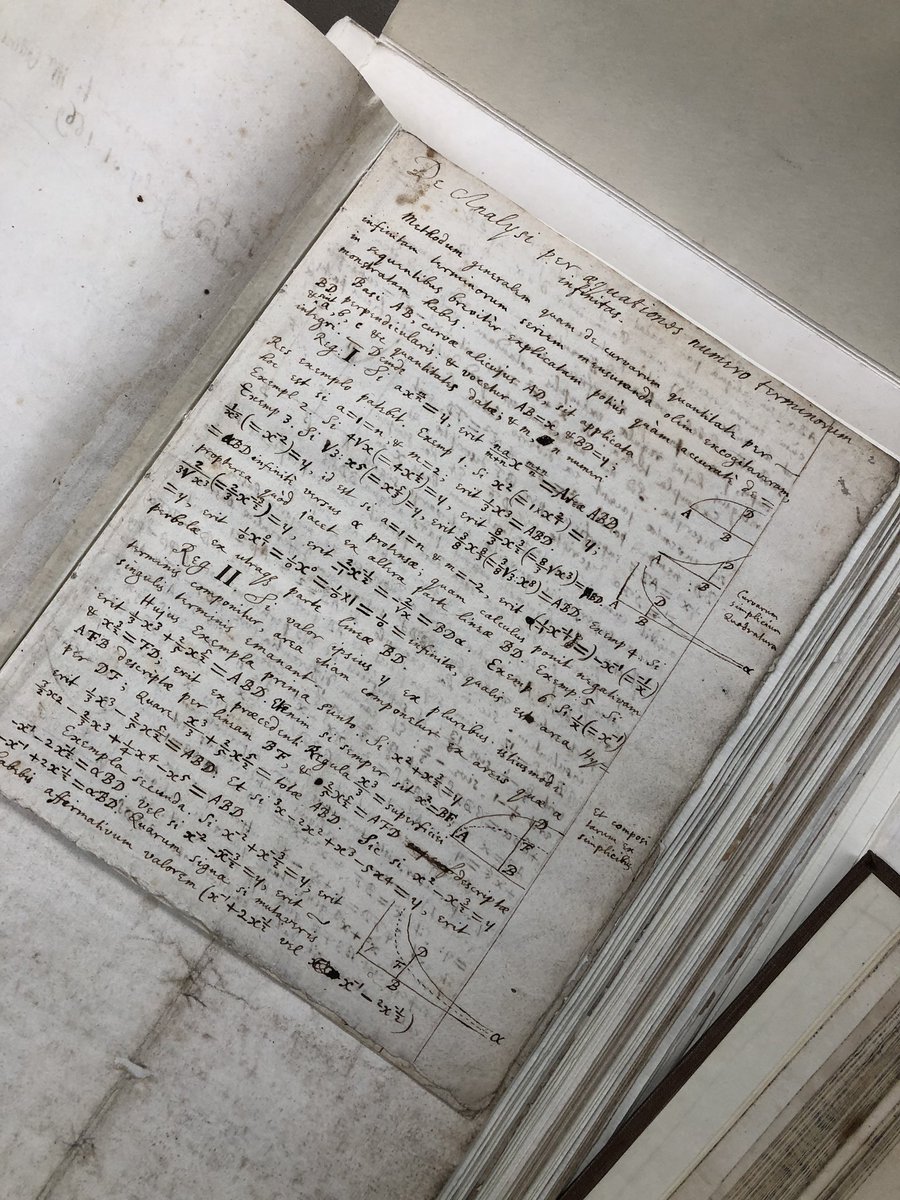 De Analysi per æquationes numero terminorum
infinitas.
Methodum generalem quam de curvarum quantitate per
infinitam terminorum seriem mensuranda olim excogitaveram
in sequentibus breviter explicatam potius quam accurate de=
monstratam habes.
Basi AB curvæ alicujus AD, sit applicata
BD perpendicularis & vocetur AB=x, & BD=y;
& sint a, b, c &c quantitates datæ, & m, n numeri
integri. Deinde
Reg: I Si ax^{m/n}=y, erit \frac{na}{m+n}x^{\frac{m+n}{n}}=Areæ ABD.
Res exemplo patebit. Exemp 1. Si x^2(=1×x^{2/1})=y,
hoc est si a=1=n, & m=2, erit \frac{1}{3}x^3=ABD.
Exempl 2. Si 4√x(=4x^{1/2})=y, erit \frac{8}{3}x^{3/2}(=\frac{8}{3}√x^3)=ABD.
Exemp 3. Si √3:x^5(=x^{5/3})=y, erit \frac{3}{8}x^{8/3}(=\frac{3}{8}√3:x^8)=ABD. Exemp 4. Si
\frac{1}{x^2}(=x^{-2})=y, id est si a=1=n & m=-2, erit
=αBD infinitè versus α protensæ quam calculus ponit negativam
propterea quod jacet ex altera parte lineæ BD. Exemp 5. Si
=y, erit \frac{2}{-1}x^{-1/2}=\frac{-2}{√x}=BDα. Exemp 6. Si \frac{1}{x}(=x^{-1})
=y, erit \frac{1}{0}x^{0}=\frac{1}{0}×1=\frac{1}{0}=infinitæ, qualis est area Hy=
perbolæ ex utraque parte lineæ BD.
Reg II Si valor ipsius y ex pluribus istiusmodi
terminis componitur, area etiam componetur ex areis quæ a
singulis terminis emanant.
Hujus Exempla prima sunto. Si x^2+x^{3/2}=y
erit \frac{1}{3}x^3+\frac{2}{5}x^{5/2}=ABD. Etenim si semper sit x^2=BF,
& x^{3/2}=FD, erit ex præcedenti Regula \frac{x^3}{3}=superficiei
AFB descriptæ per lineam BF, & \frac{2}{5}x^{5/2}=AFD descriptæ
per DF; Quare \frac{x^3}{3}+\frac{2}{5}x^{5/2}=totæ ABD. Sic si x^2-x^{3/2}=y
erit \frac{1}{3}x^3-\frac{2}{5}x^{5/2}=ABD. Et si 3x-2x^2+x^3-5x^4=y, erit
\frac{3}{2}x^2-\frac{2}{3}x^3+\frac{1}{4}x^4-x^5=ABD.
Exempla secunda. Si x^{-2}+x^{-3/2}=y, erit
-x^{-1}-2x^{-1/2}=αBD. vel si x^{-2}-x^{-3/2}=y, erit
-x^{-1}+2x^{-1/2}=αBD. Quarum signa si mutaveris
habebis
affirmativum valorem (x^{-1}+2x^{-1/2} vel x^{-1}-2x^{-1/2})
Curvarum
simplicium
Quadratura
Et composi
tarum ex
simplicibus
A D B
D B α
A D B α
A D F B
D F B α